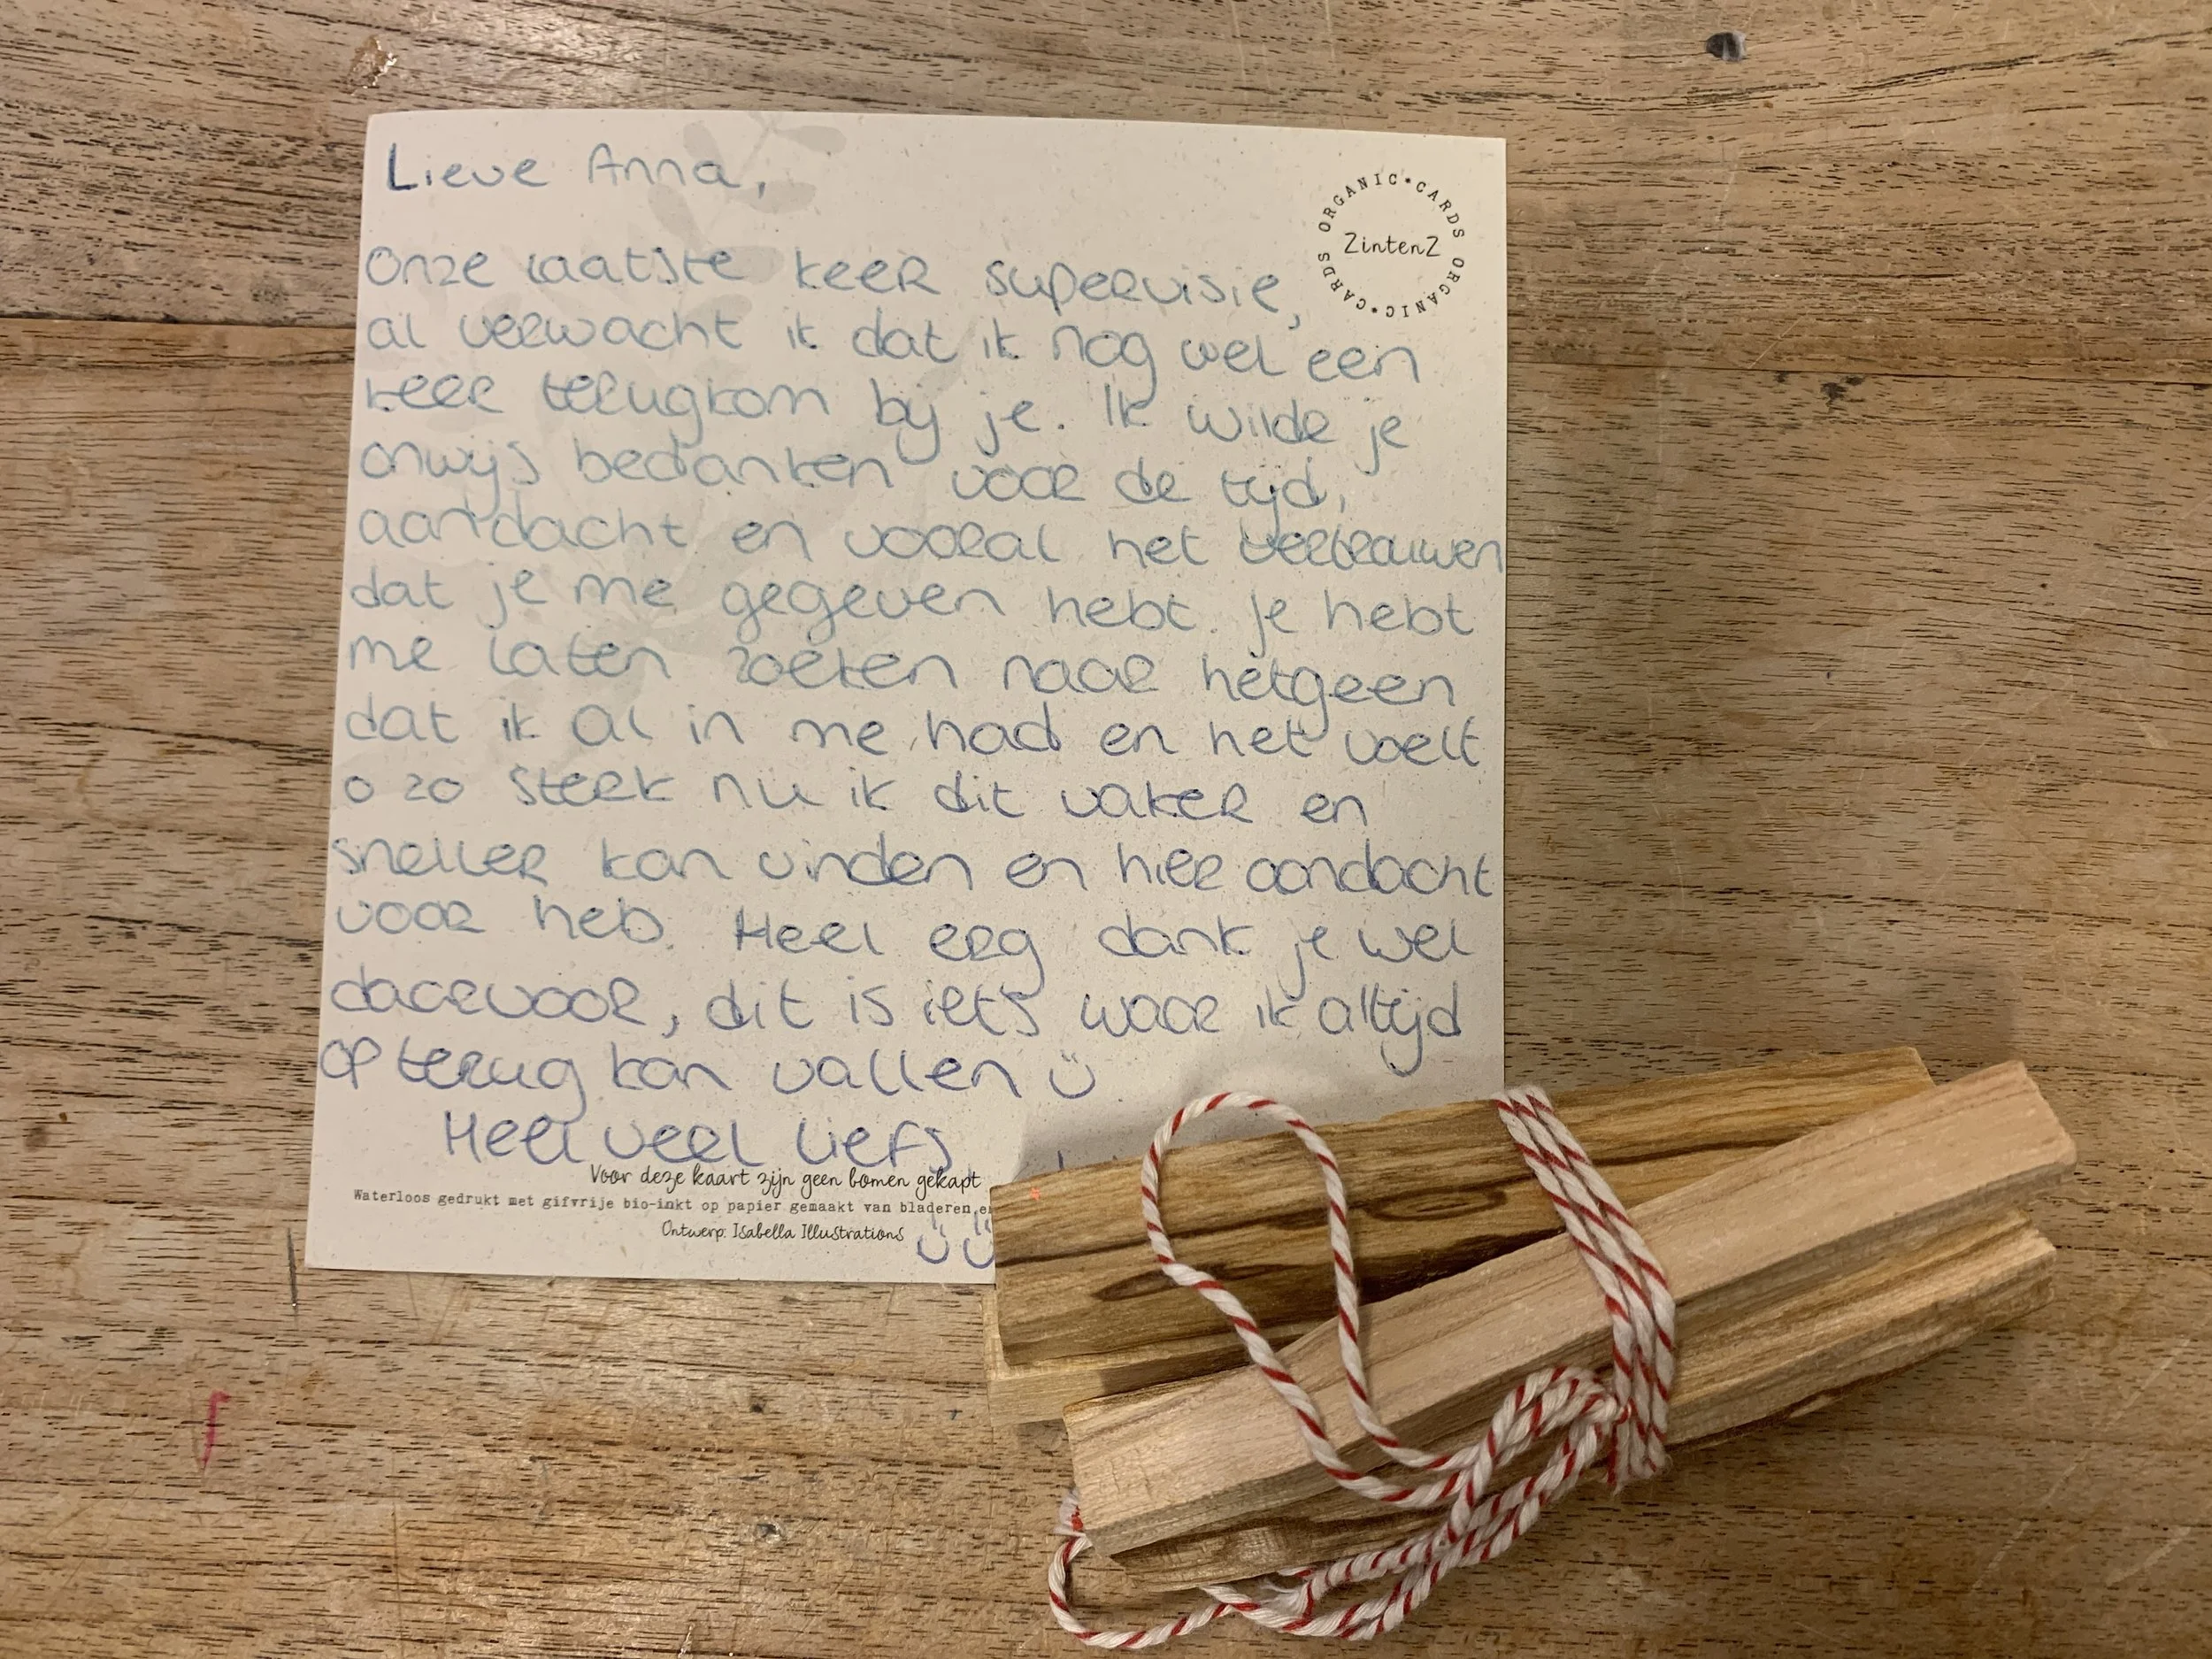 Lieve Anna,
ORGANIC • CARDS ORGANIC • CARDS
ZintenZ
Onze laatste keer supervisie,
al verwacht ik dat ik nog wel een
keer terugkom bij je. Ik wilde je
onwijs bedanken voor de tijd,
aandacht en vooral het vertrouwen
dat je me gegeven hebt. Je hebt
me laten zoeken naar hetgeen
dat ik al in me had en het voelt
o zo sterk nu ik dit vaker en
sneller kan vinden en hier aandacht
voor heb. Heel erg dank je wel
daarvoor, dit is iets waar ik altijd
op terug kan vallen ☺
Heel veel liefs
Voor deze kaart zijn geen bomen gekapt
Waterloos gedrukt met gifvrije bio-inkt op papier gemaakt van bladeren en
Ontwerp: Isabella Illustrations